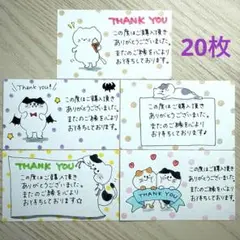 THANK YOU
20枚
この度はご購入頂き
ありがとうございました。
またのご縁を心より
お待ちしております。
Thank you!
この度はご購入頂き
ありがとうございました。
またのご縁を心より
お待ちしております。
この度はご購入頂き
ありがとうございました。
またのご縁を心より
お待ちしております。
THANK YOU
この度はご購入頂き
ありがとうございました。
またのご縁を心より
お待ちしております☆
この度はご購入頂き
ありがとうございました。
またのご縁を心より
お待ちしております。
THANK YOU